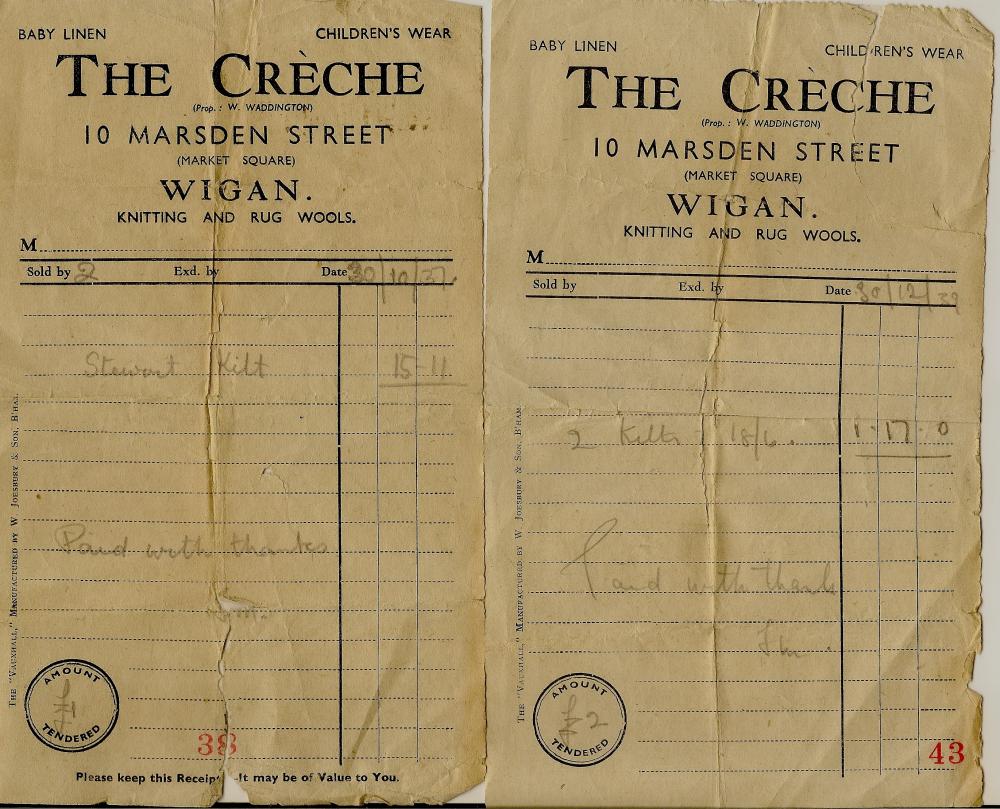 BABY LINEN CHILDREN'S WEAR
THE CRÈCHE
(Prop.: W. WADDINGTON)
10 MARSDEN STREET
(MARKET SQUARE)
WIGAN.
KNITTING AND RUG WOOLS.
M
Sold by 2 Exd. by Date 30/10/37.
Stewart Kilt 15-11
Paid with thanks
THE "VAUXHALL," MANUFACTURED BY W JOESBURY & SON, B'HAM.
AMOUNT
£1
TENDERED
38
Please keep this Receipt -It may be of Value to You.
BABY LINEN CHILDREN'S WEAR
THE CRÈCHE
(Prop.: W. WADDINGTON)
10 MARSDEN STREET
(MARKET SQUARE)
WIGAN.
KNITTING AND RUG WOOLS.
M
Sold by Exd. by Date 30/12/39
2 Kilts - 18/6. 1-17-0
Paid with thanks
THE "VAUXHALL," MANUFACTURED BY W. JOESBURY & SON, B'HAM
AMOUNT
£2
TENDERED
43